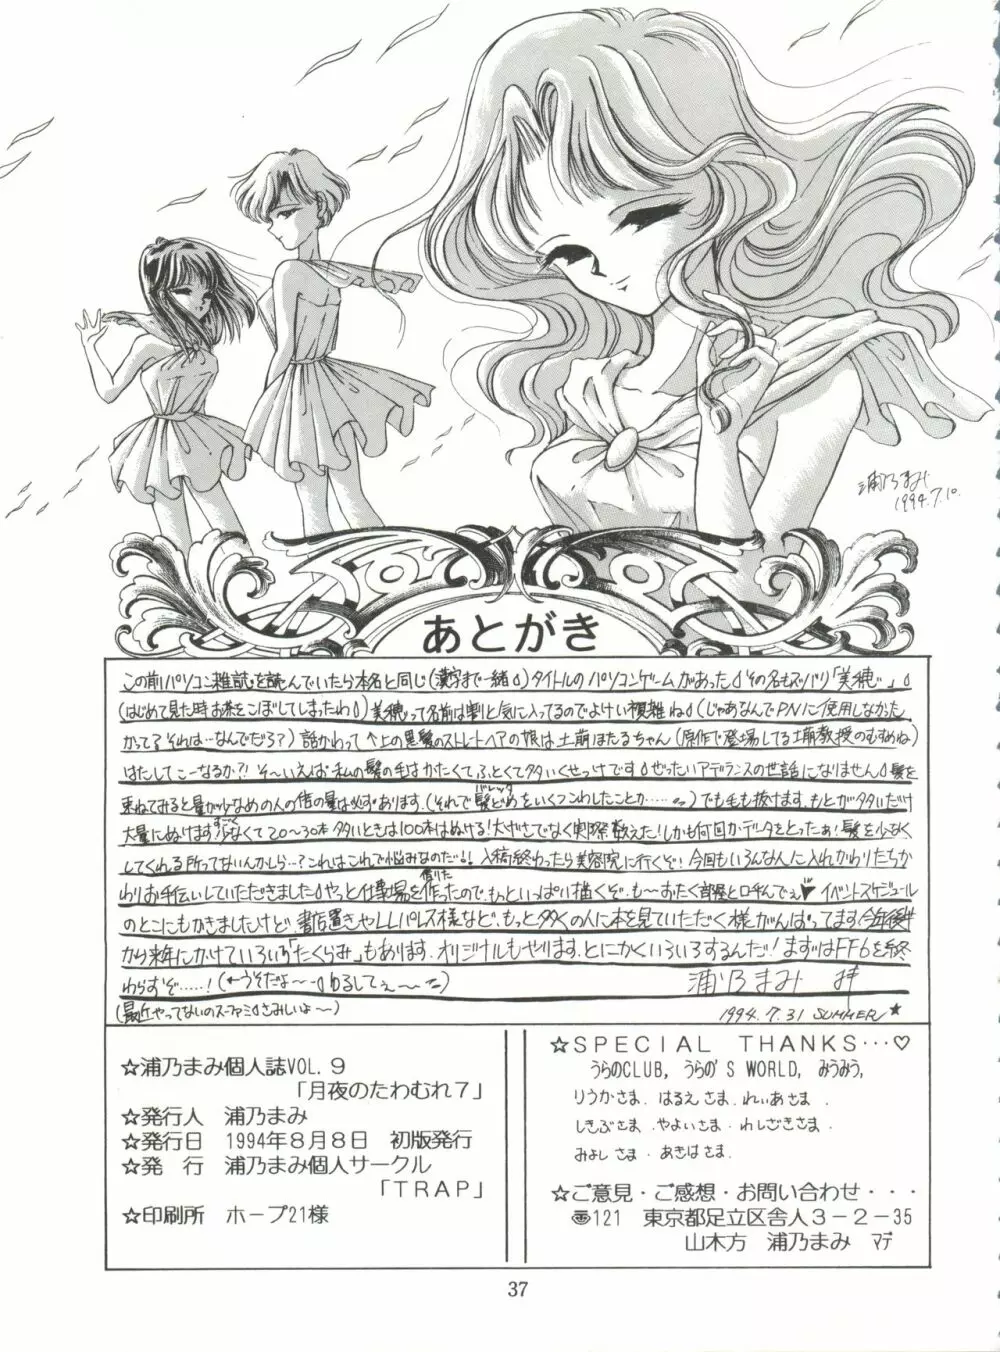 浦乃まみ
1994.7.10.
あとがき
この前パソコン雑誌を読んでいたら本名と同じ(漢字まで一緒)タイトルのパソコンゲームがあった その名もズバリ「美穂」
(はじめて見た時お茶をこぼしてしまったわ)美穂って名前は割と気に入ってるのでよけい複雑ね(じゃあなんでPNに使用しなかった
かって?それは…なんでだろ?)話かわって↑上の黒髪のストレートヘアの娘は土萠ほたるちゃん(原作で登場してる土萠教授のむすめね)
はたしてこーなるか?!そ〜いえば私の髪の毛はかたくてふとくて多いくせっけです ぜったいアデランスの世話になりません 髪を
束ねてみると量が少なめの人の倍の量は必ずあります.(それで髪どめ(バレッタ)をいくつこわしたことか……)でも毛も抜けます.もとが多いだけ
大量にぬけます すごく少なくて20〜30本多いときは100本はぬける!大げさでなく実際数えた!しかも何回かデータをとったぁ!髪を少なく
してくれる所ってないんかしら…?これはこれで悩みなのだ!!入稿終わったら美容院に行くぞ!今回もいろんな人に入れかわりたちか
わりお手伝いしていただきました やっと仕事場を作った(借りた)ので.もっといっぱい描くぞ.も〜おたく部屋と呼んでぇ♥イベントスケジュール
のとこにもかきましたけど書店置きやLLパレス様など、もっと多くの人に本を見ていただく様がんばってます.今年後半
から来年にかけていろいろ「たくらみ」もあります.オリジナルもやります.とにかくいろいろするんだ!まずはFF6を終
わらすぞ……!(←うそだよ〜〜ゆるしてぇ〜)浦乃まみ
(最近やってないのスーファミ さみしいよ〜)
1994.7.31 SUMMER★
☆浦乃まみ個人誌VOL.9
「月夜のたわむれ7」
☆発行人 浦乃まみ
☆発行日 1994年8月8日 初版発行
☆発 行 浦乃まみ個人サークル
「TRAP」
☆印刷所 ホープ21様
☆SPECIAL THANKS…♡
うらのCLUB, うらの'S WORLD, みうみう,
りうかさま.はるえさま.れぃあさま.
しきぶさま.やよいさま.わしざきさま.
みよしさま.あきはさま.
☆ご意見・ご感想・お問い合わせ・・・
〠121 東京都足立区舎人3-2-35
山木方 浦乃まみ マデ
37